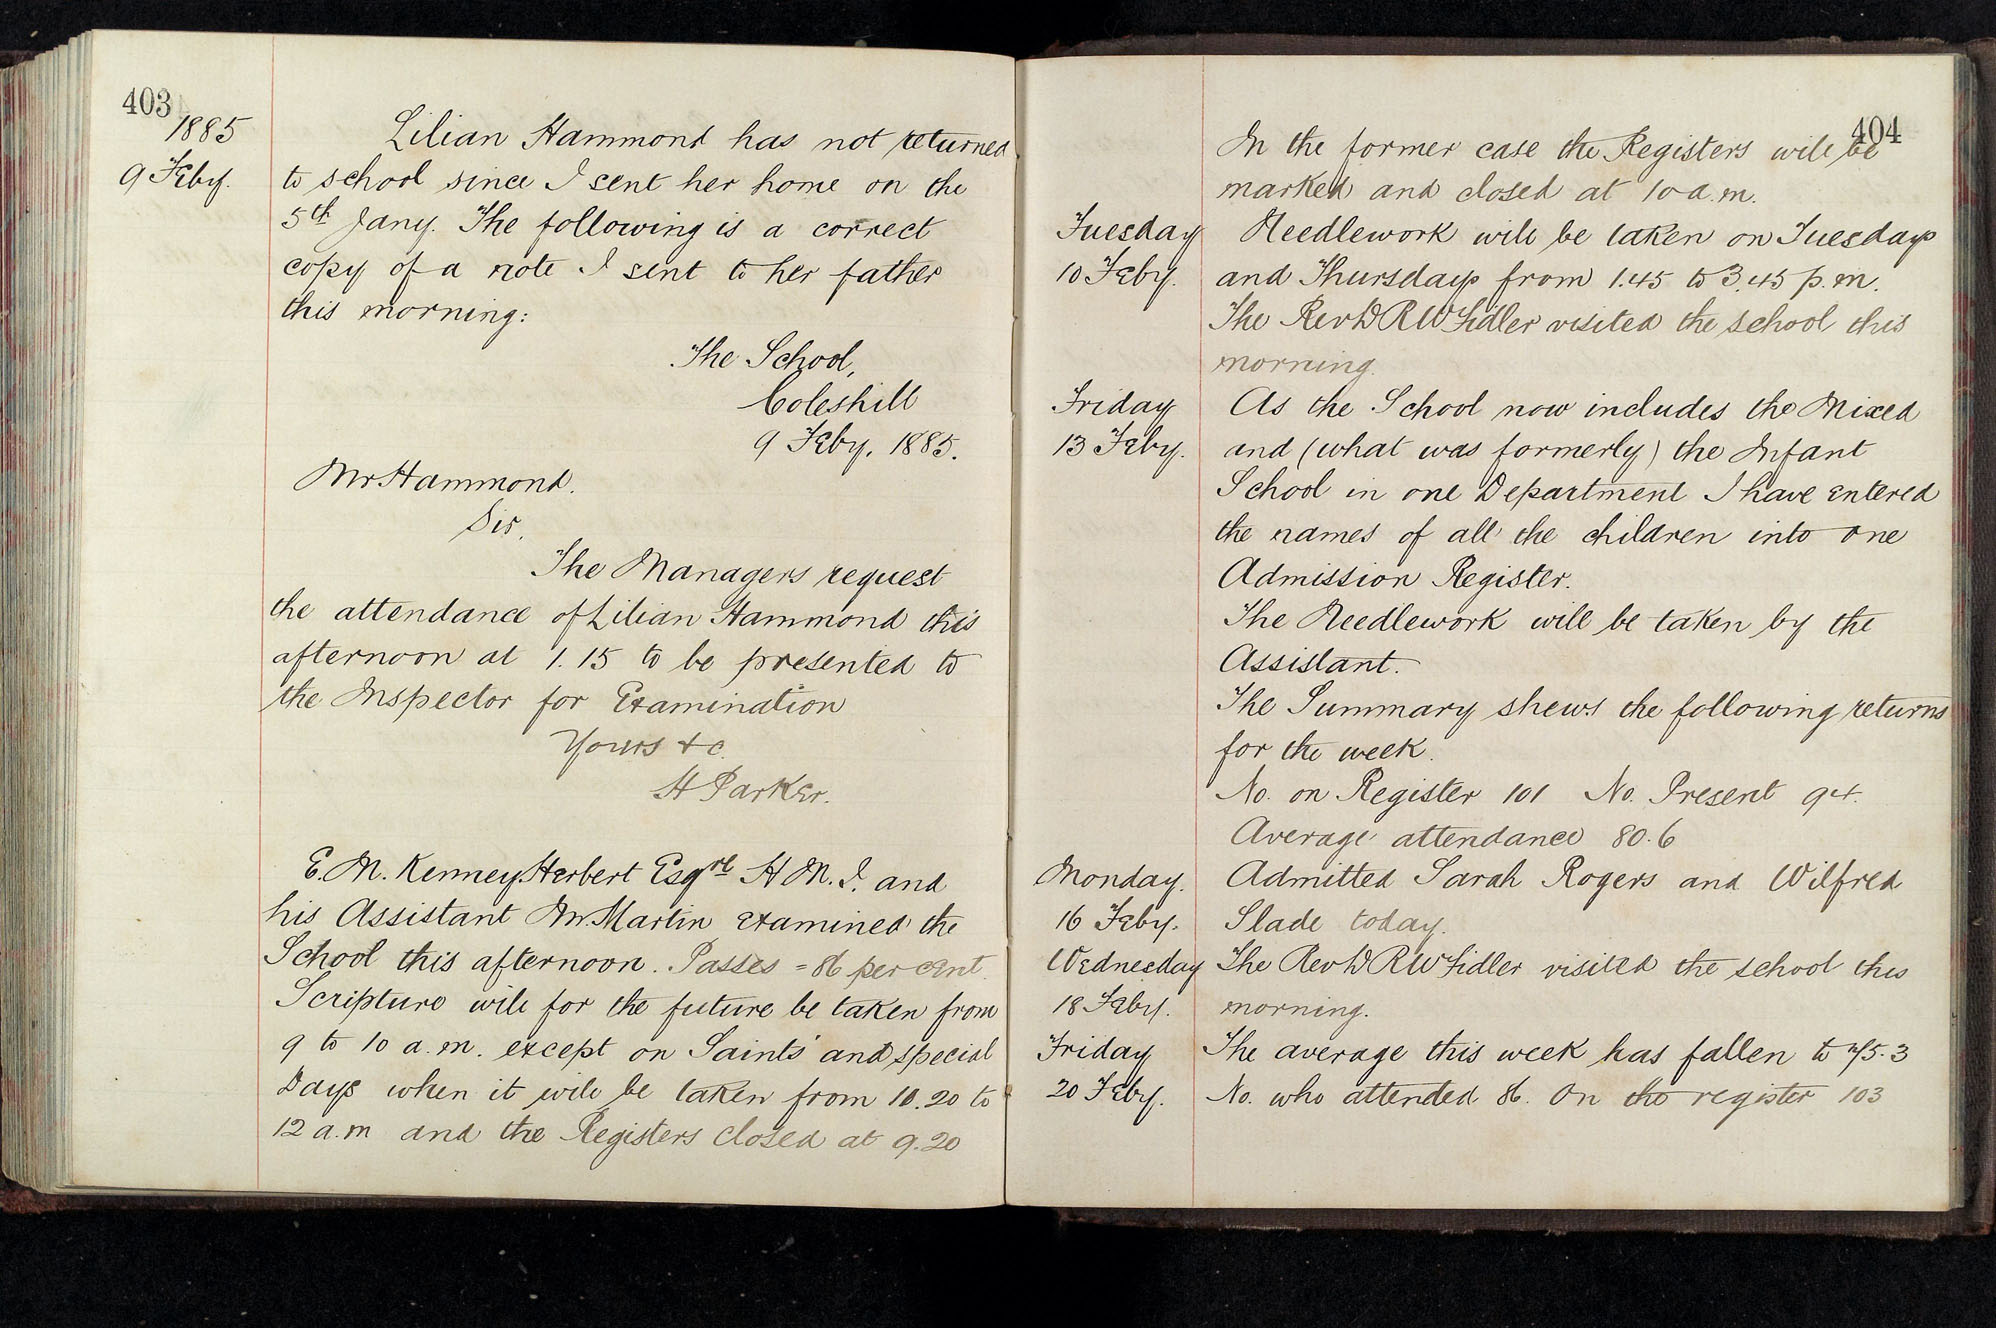 403
1885
9 Feby.
Lilian Hammond has not returned
to school since I sent her home on the
5th Jany. The following is a correct
copy of a note I sent to her father
this morning:
The School,
Coleshill
9 Feby. 1885.
Mr Hammond.
Sir,
The Managers request
the attendance of Lilian Hammond this
afternoon at 1.15 to be presented to
the Inspector for Examination
Yours &c.
H Parker.
E. M. Kenney Herbert Esqre H M. I. and
his Assistant Mr Martin examined the
School this afternoon. Passes = 86 per cent.
Scripture will for the future be taken from
9 to 10 a.m. except on Saints' and special
Days when it will be taken from 10.20 to
12 a.m and the Registers closed at 9.20
404
In the former case the Registers will be
marked and closed at 10 a.m.
Tuesday Needlework will be taken on Tuesdays
10 Feby. and Thursdays from 1.45 to 3.45 p.m.
The Rev D R W Fidler visited the school this
morning.
Friday As the School now includes the Mixed
13 Feby. and (what was formerly) the Infant
School in one Department I have entered
the names of all the children into one
Admission Register.
The Needlework will be taken by the
Assistant.
The Summary shews the following returns
for the week.
No. on Register 101 No. Present 94.
Average attendance 80.6
Monday. Admitted Sarah Rogers and Wilfred
16 Feby. Slade today.
Wednesday The Rev D R W Fidler visited the school this
18 Feby. morning.
Friday The average this week has fallen to 75.3
20 Feby. No. who attended 86. On the register 103